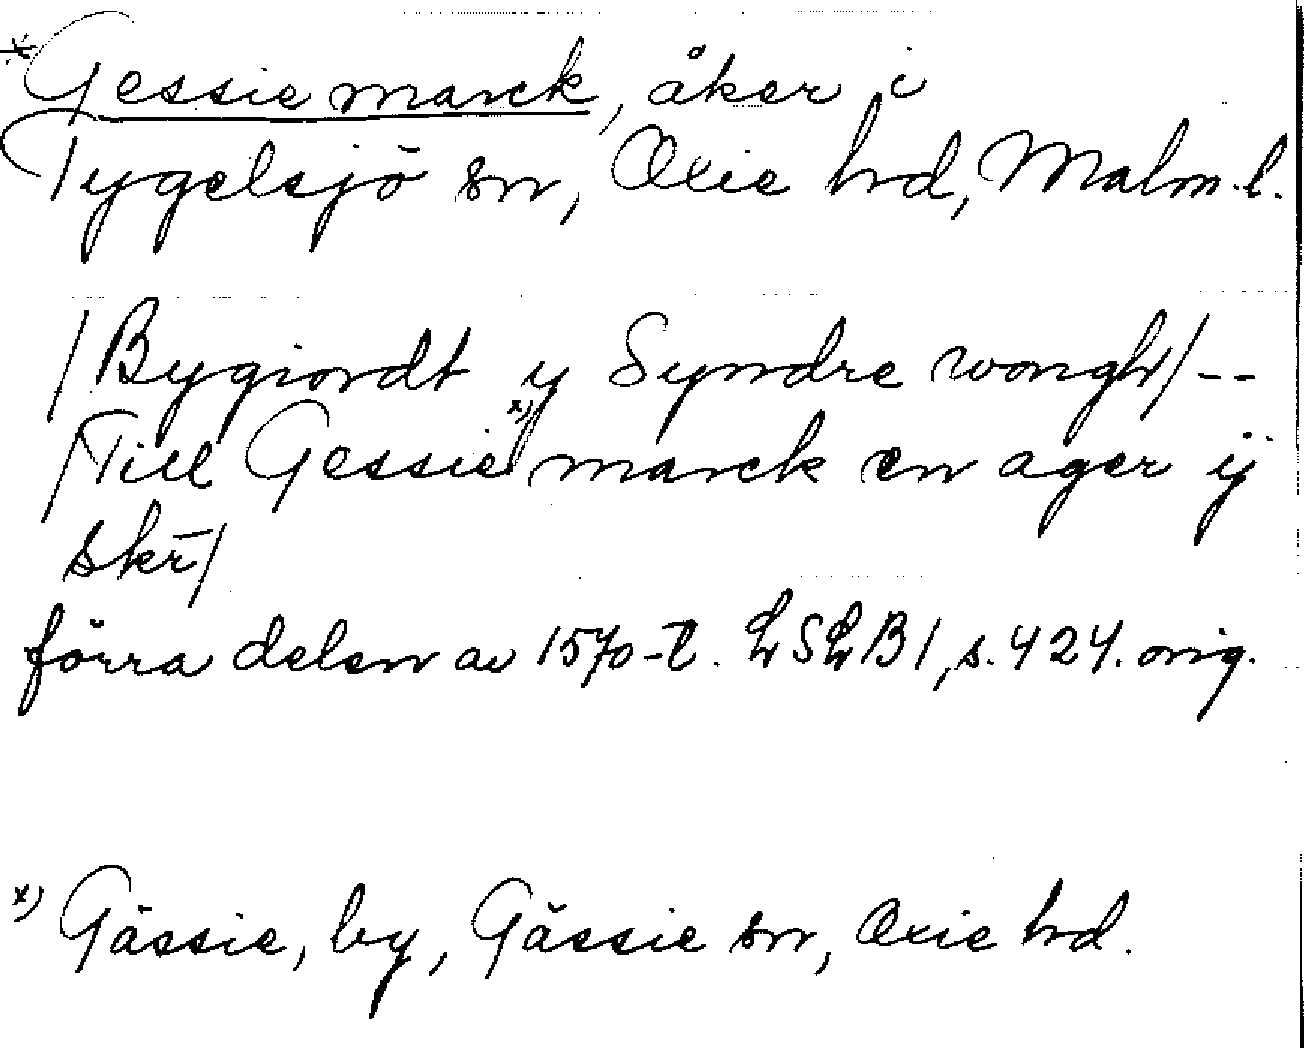 *Gessie marck, åker i
Tygelsjö sn, Oxie hd, Malm. l.
/Bygiordt y Syndre wongh/--
/Till Gessie x) marck en ager ij
skr̄/
förra delen av 1570-t. LSLB1, s. 424. orig.
x) Gässie, by, Gässie sn, Oxie hd.